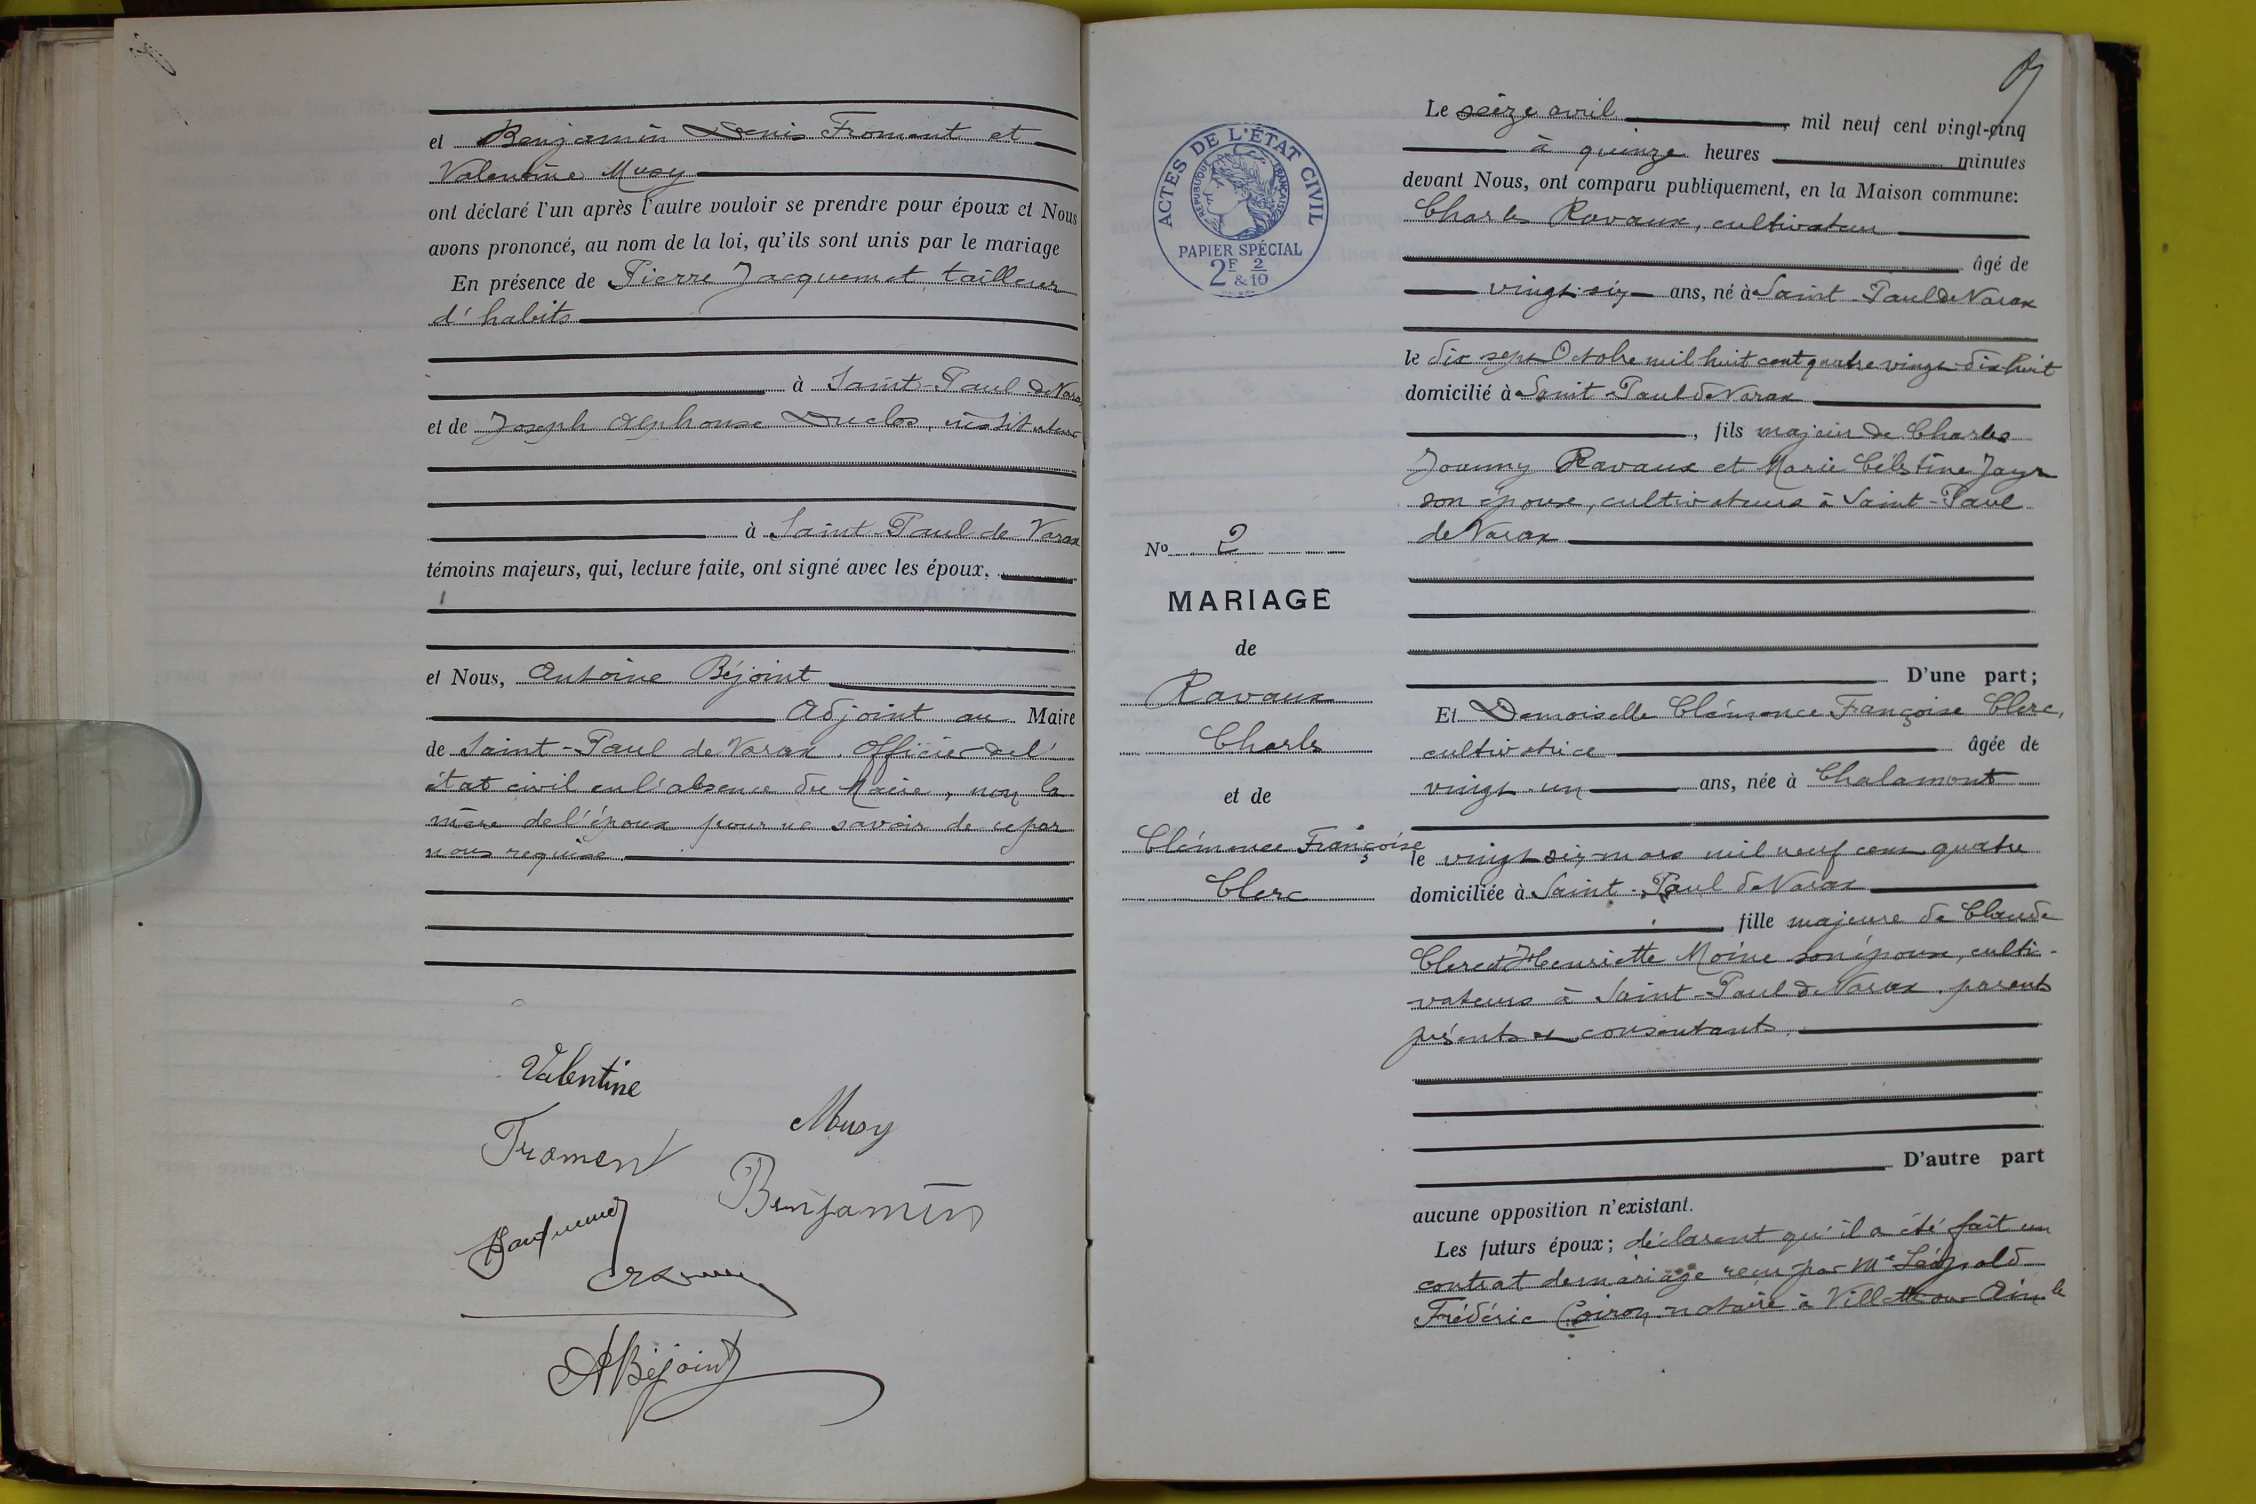 et Benjamin Denis Froment et
Valentine Musy
ont déclaré l'un après l'autre vouloir se prendre pour époux et Nous
avons prononcé, au nom de la loi, qu'ils sont unis par le mariage
En présence de Pierre Jacquemet, tailleur
d'habits
à Saint-Paul de Varax
et de Joseph Alphonse Duclos, instituteur
à Saint-Paul de Varax
témoins majeurs, qui, lecture faite, ont signé avec les époux.
et Nous, Antoine Béjoint
Adjoint au Maire
de Saint-Paul de Varax. Officier de l'
état civil en l'absence du Maire, non la
mère de l'époux pour ne savoir de ce par
nous requise
Valentine
Musy
Froment
Benjamin
Jacquemet
ABéjoint
ACTES DE L'ÉTAT CIVIL
RÉPUBLIQUE FRANÇAISE
PAPIER SPÉCIAL
2F & 2/10
No 2
MARIAGE
de
Ravaux
Charles
et de
Clémence Françoise
Clerc
Le seize avril, mil neuf cent vingt-cinq
à quinze heures minutes
devant Nous, ont comparu publiquement, en la Maison commune:
Charles Ravaux, cultivateur
âgé de
vingt-six ans, né à Saint-Paul de Varax
le dix sept Octobre mil huit cent quatre vingt-dix huit
domicilié à Saint-Paul de Varax
, fils majeur de Charles
Joanny Ravaux et Marie Célestine Jayr
son épouse, cultivateurs à Saint-Paul
de Varax
D'une part;
Et Demoiselle Clémence Françoise Clerc,
cultivatrice âgée de
vingt-un ans, née à Chalamont
le vingt six mars mil neuf cent quatre
domiciliée à Saint-Paul de Varax
, fille majeure de Claude
Clerc et Henriette Moine son épouse, culti-
vateurs à Saint-Paul de Varax. parents
présents et consentants.
D'autre part
aucune opposition n'existant.
Les futurs époux; déclarent qu'il a été fait un
contrat de mariage reçu par Me Léopold
Frédéric Coiron notaire à Villette sur Ain le